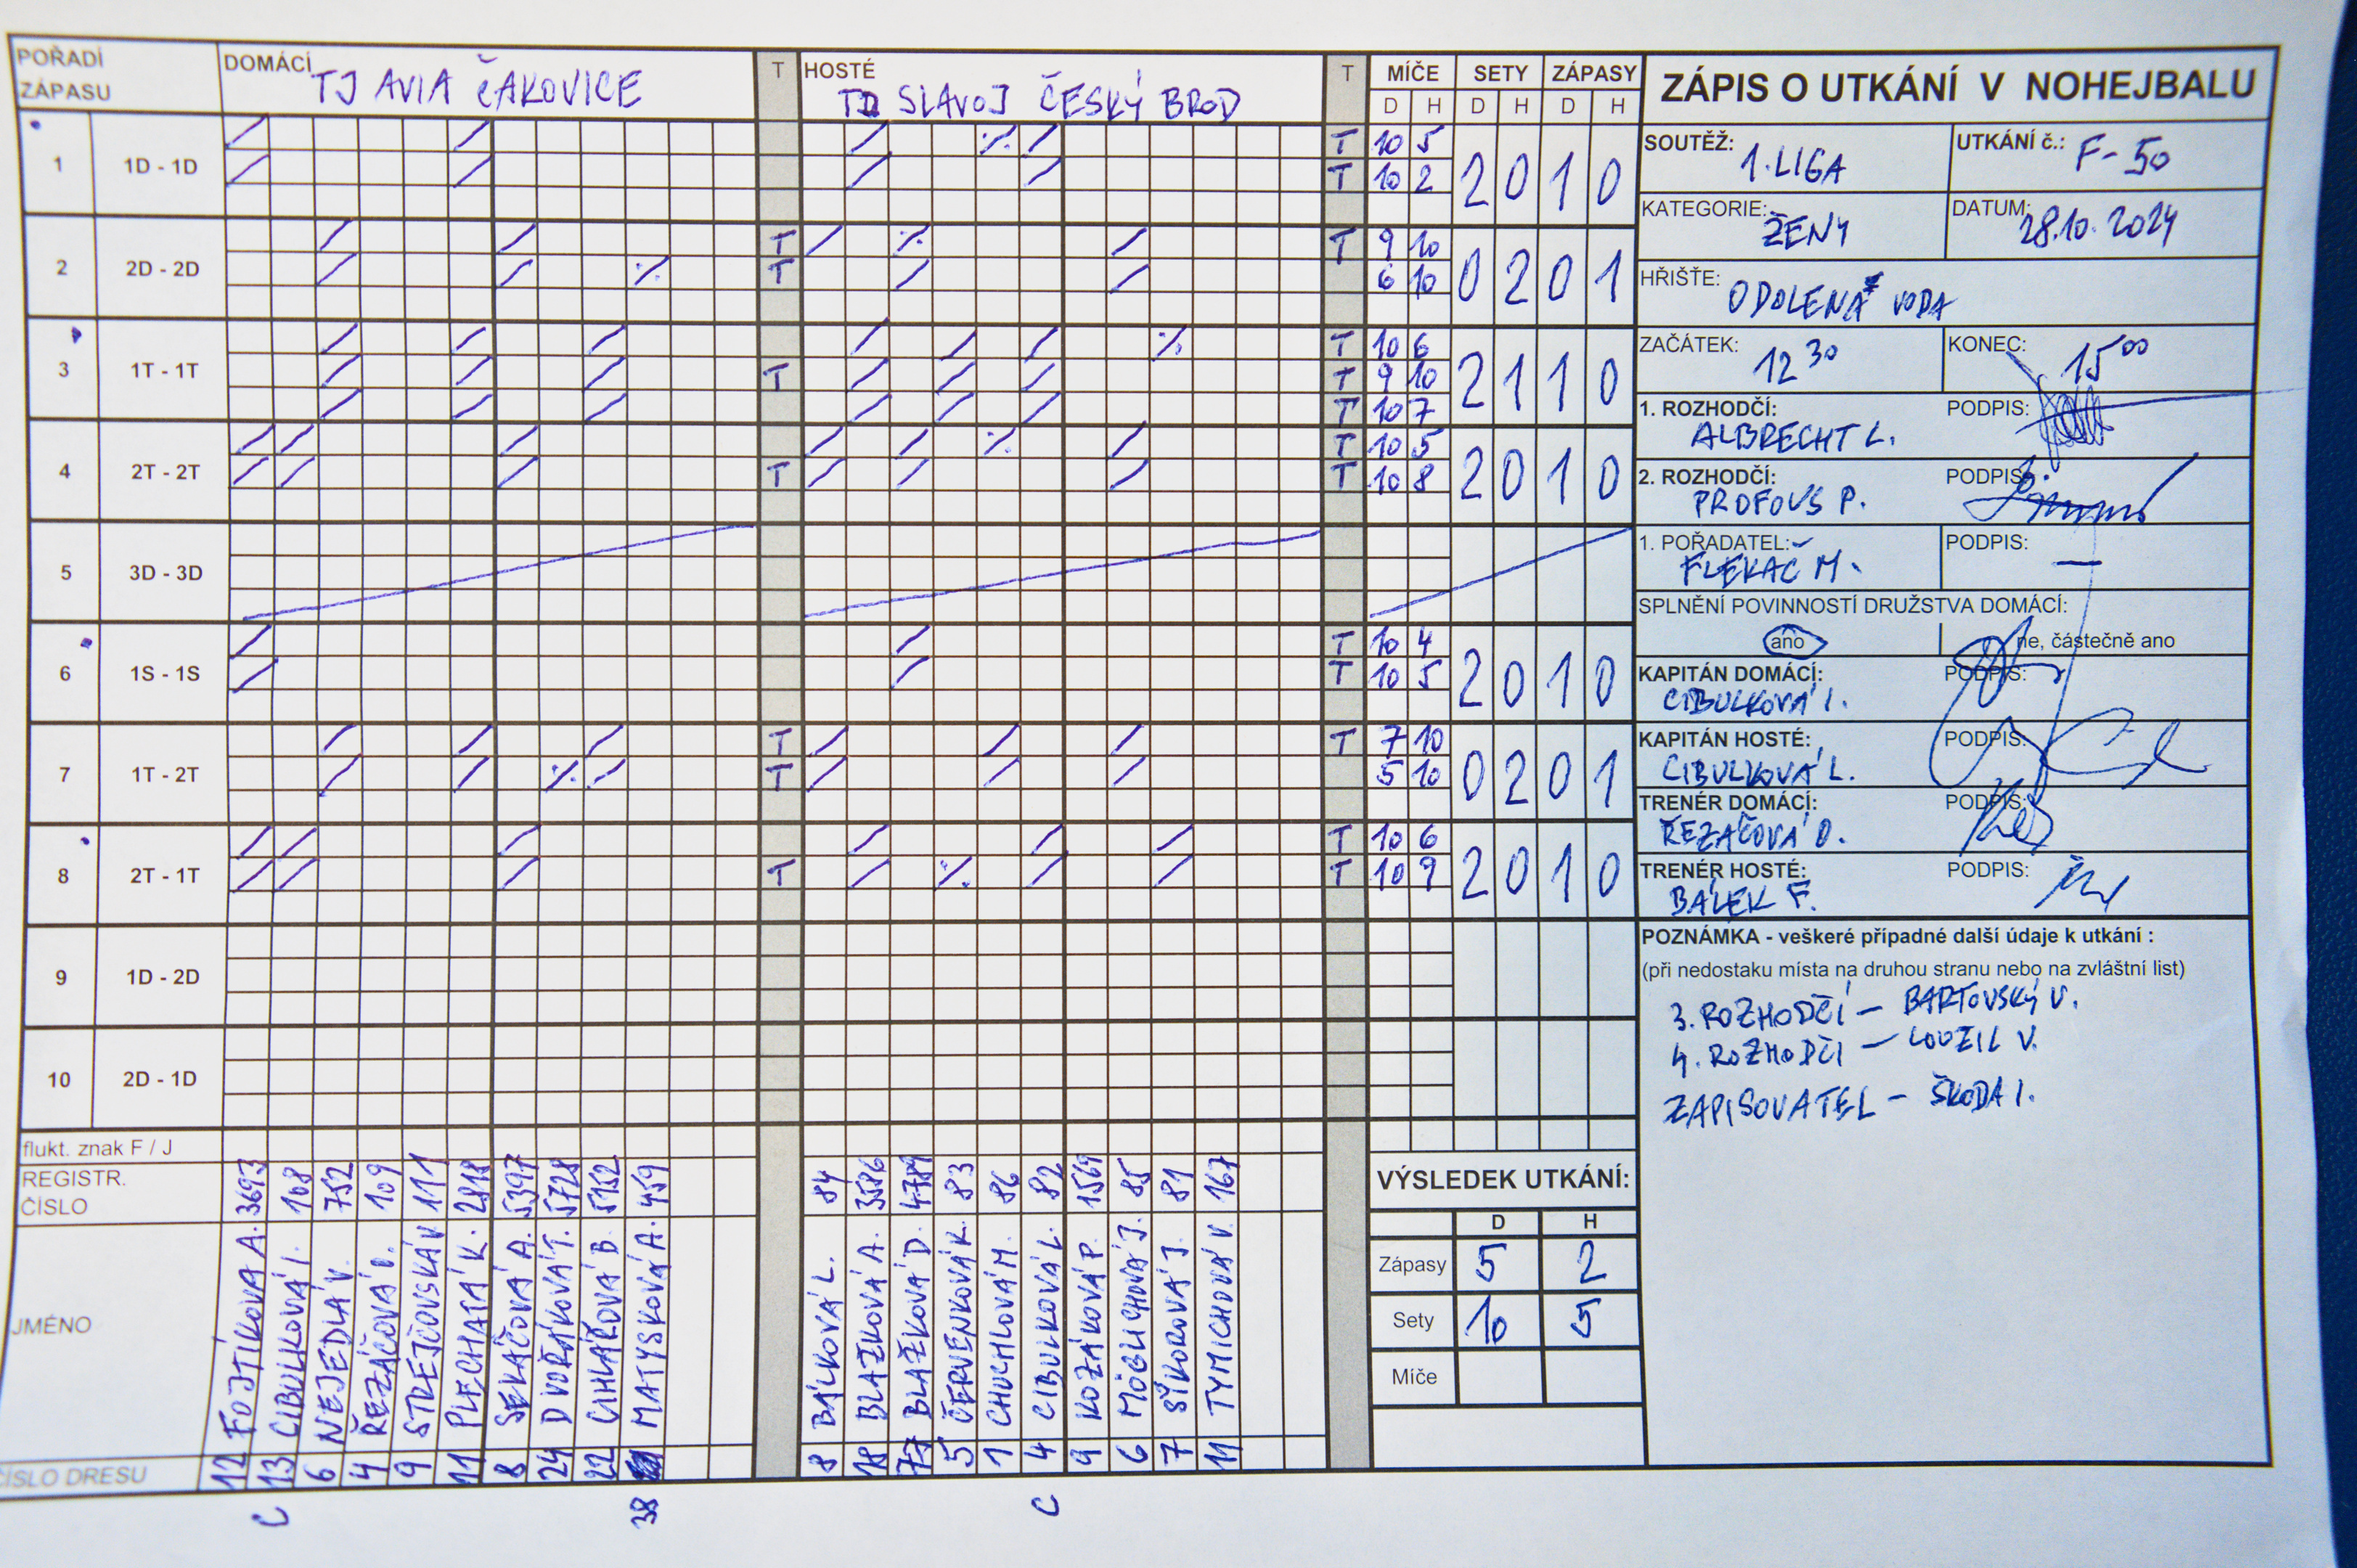 POŘADÍ ZÁPASU DOMÁCÍ TJ AVIA ČAKOVICE T HOSTÉ SLAVOJ ČESKÝ BROD T MÍČE SETY ZÁPASY
D H D H D H
1 1D - 1D T 10 5 2 0 1 0
T 10 2
2 2D - 2D T T 9 10 0 2 0 1
T 6 10
3 1T - 1T T 10 6 2 1 1 0
T T 9 10
T 10 7
4 2T - 2T T 10 5 2 0 1 0
T T 10 8
5 3D - 3D
6 1S - 1S T 10 4 2 0 1 0
T 10 5
7 1T - 2T T T 7 10 0 2 0 1
T 5 10
8 2T - 1T T 10 6 2 0 1 0
T T 10 9
9 1D - 2D
10 2D - 1D
flukt. znak F / J
REGISTR. ČÍSLO
JMÉNO
ČÍSLO DRESU
12 FOJTÍKOVÁ A. 3693
13 CIBULKOVÁ I. 108
6 NEJEDLÁ V. 752
4 ŘEZÁČOVÁ O. 109
9 STREJČOVSKÁ V. 111
11 PLECHATÁ K. 2818
8 SEKÁČOVÁ A. 5397
24 DVOŘÁKOVÁ T. 5728
22 CIHLÁŘOVÁ B. 5152
MATYSKOVÁ A. 459
C
38
8 BÁLKOVÁ L. 84
18 BLAŽKOVÁ A. 3586
77 BLAŽKOVÁ D. 4789
5 ČERVENKOVÁ K. 83
1 CHUCHLOVÁ M. 86
4 CIBULKOVÁ L. 82
9 KOZÁKOVÁ P. 1569
6 MÖGLICHOVÁ J. 85
7 SÝKOROVÁ J. 81
11 TYMICHOVÁ V. 167
C
VÝSLEDEK UTKÁNÍ:
D H
Zápasy 5 2
Sety 10 5
Míče
ZÁPIS O UTKÁNÍ V NOHEJBALU
SOUTĚŽ: 1. LIGA UTKÁNÍ č.: F-50
KATEGORIE: ŽENY DATUM: 28.10.2024
HŘIŠTĚ: ODOLENA VODA
ZAČÁTEK: 12 30 KONEC: 15 00
1. ROZHODČÍ: PODPIS:
ALBRECHT L.
2. ROZHODČÍ: PODPIS:
PROFOUS P.
1. POŘADATEL: PODPIS:
FLEKAČ M. —
SPLNĚNÍ POVINNOSTÍ DRUŽSTVA DOMÁCÍ:
ano ne, částečně ano
KAPITÁN DOMÁCÍ: PODPIS:
CIBULKOVÁ I.
KAPITÁN HOSTÉ: PODPIS:
CIBULKOVÁ L.
TRENÉR DOMÁCÍ: PODPIS:
ŘEZAČOVÁ O.
TRENÉR HOSTÉ: PODPIS:
BÁLEK F.
POZNÁMKA - veškeré případné další údaje k utkání :
(při nedostaku místa na druhou stranu nebo na zvláštní list)
3. ROZHODČÍ — BARTOVSKÝ V.
4. ROZHODČÍ — LOUZIL V.
ZAPISOVATEL — ŠKODA I.